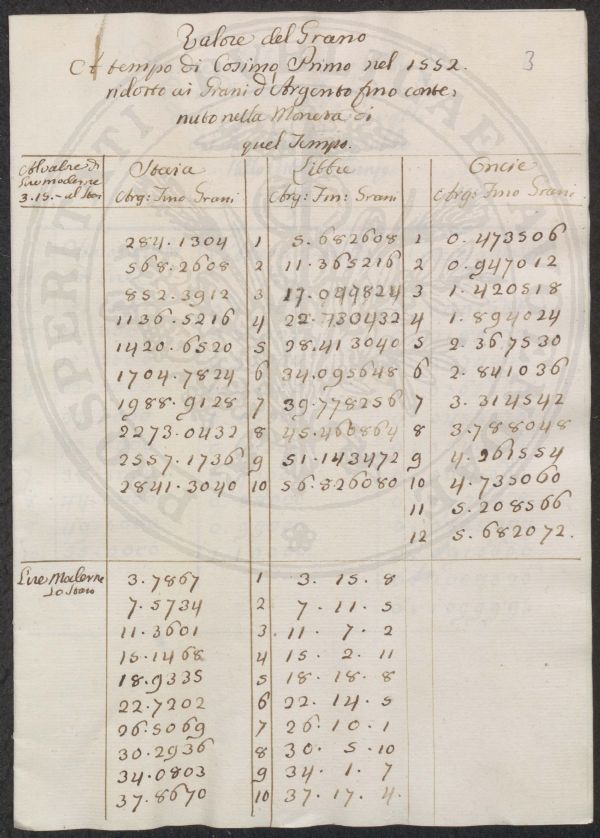 3
Valore del Grano
Al tempo di Cosimo Primo nel 1552.
ridotto ai Grani d'Argento fino conte,
nuto nella Moneta di
quel Tempo.
Al valore di Staia Libbre Oncie
Lire moderne
3.15.- al Arg: Fino Grani Arg: Fin: Grani Arg: Fino Grani
284.1304 1 5.682608 1 0.473506
568.2608 2 11.365216 2 0.947012
852.3912 3 17.047824 3 1.420518
1136.5216 4 22.730432 4 1.894024
1420.6520 5 28.413040 5 2.367530
1704.7824 6 34.095648 6 2.841036
1988.9128 7 39.778256 7 3.314542
2273.0432 8 45.460864 8 3.788048
2557.1736 9 51.143472 9 4.261554
2841.3040 10 56.826080 10 4.735060
11 5.208566
12 5.682072.
Lire Moderne 3.7867 1 3.15.8
Lo Staio 7.5734 2 7.11.5
11.3601 3 11.7.2
15.1468 4 15.2.11
18.9335 5 18.18.8
22.7202 6 22.14.5
26.5069 7 26.10.1
30.2936 8 30.5.10
34.0803 9 34.1.7
37.8670 10 37.17.4.